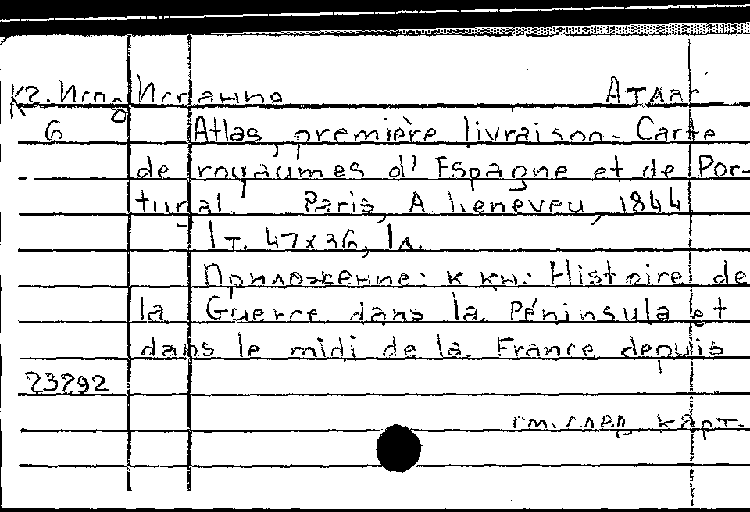 Кг. Исп Испания Атлас
6 Atlas, première livraison. Carte
de royaumes d'Espagne et de Por-
tugal. Paris, A Leneveu, 1844
1 т. 47x36, 1 л.
Приложение: к кн.: Histoire de
la Guerre dans la Péninsula et
dans le midi de la France depuis
23292
см. след. карт.